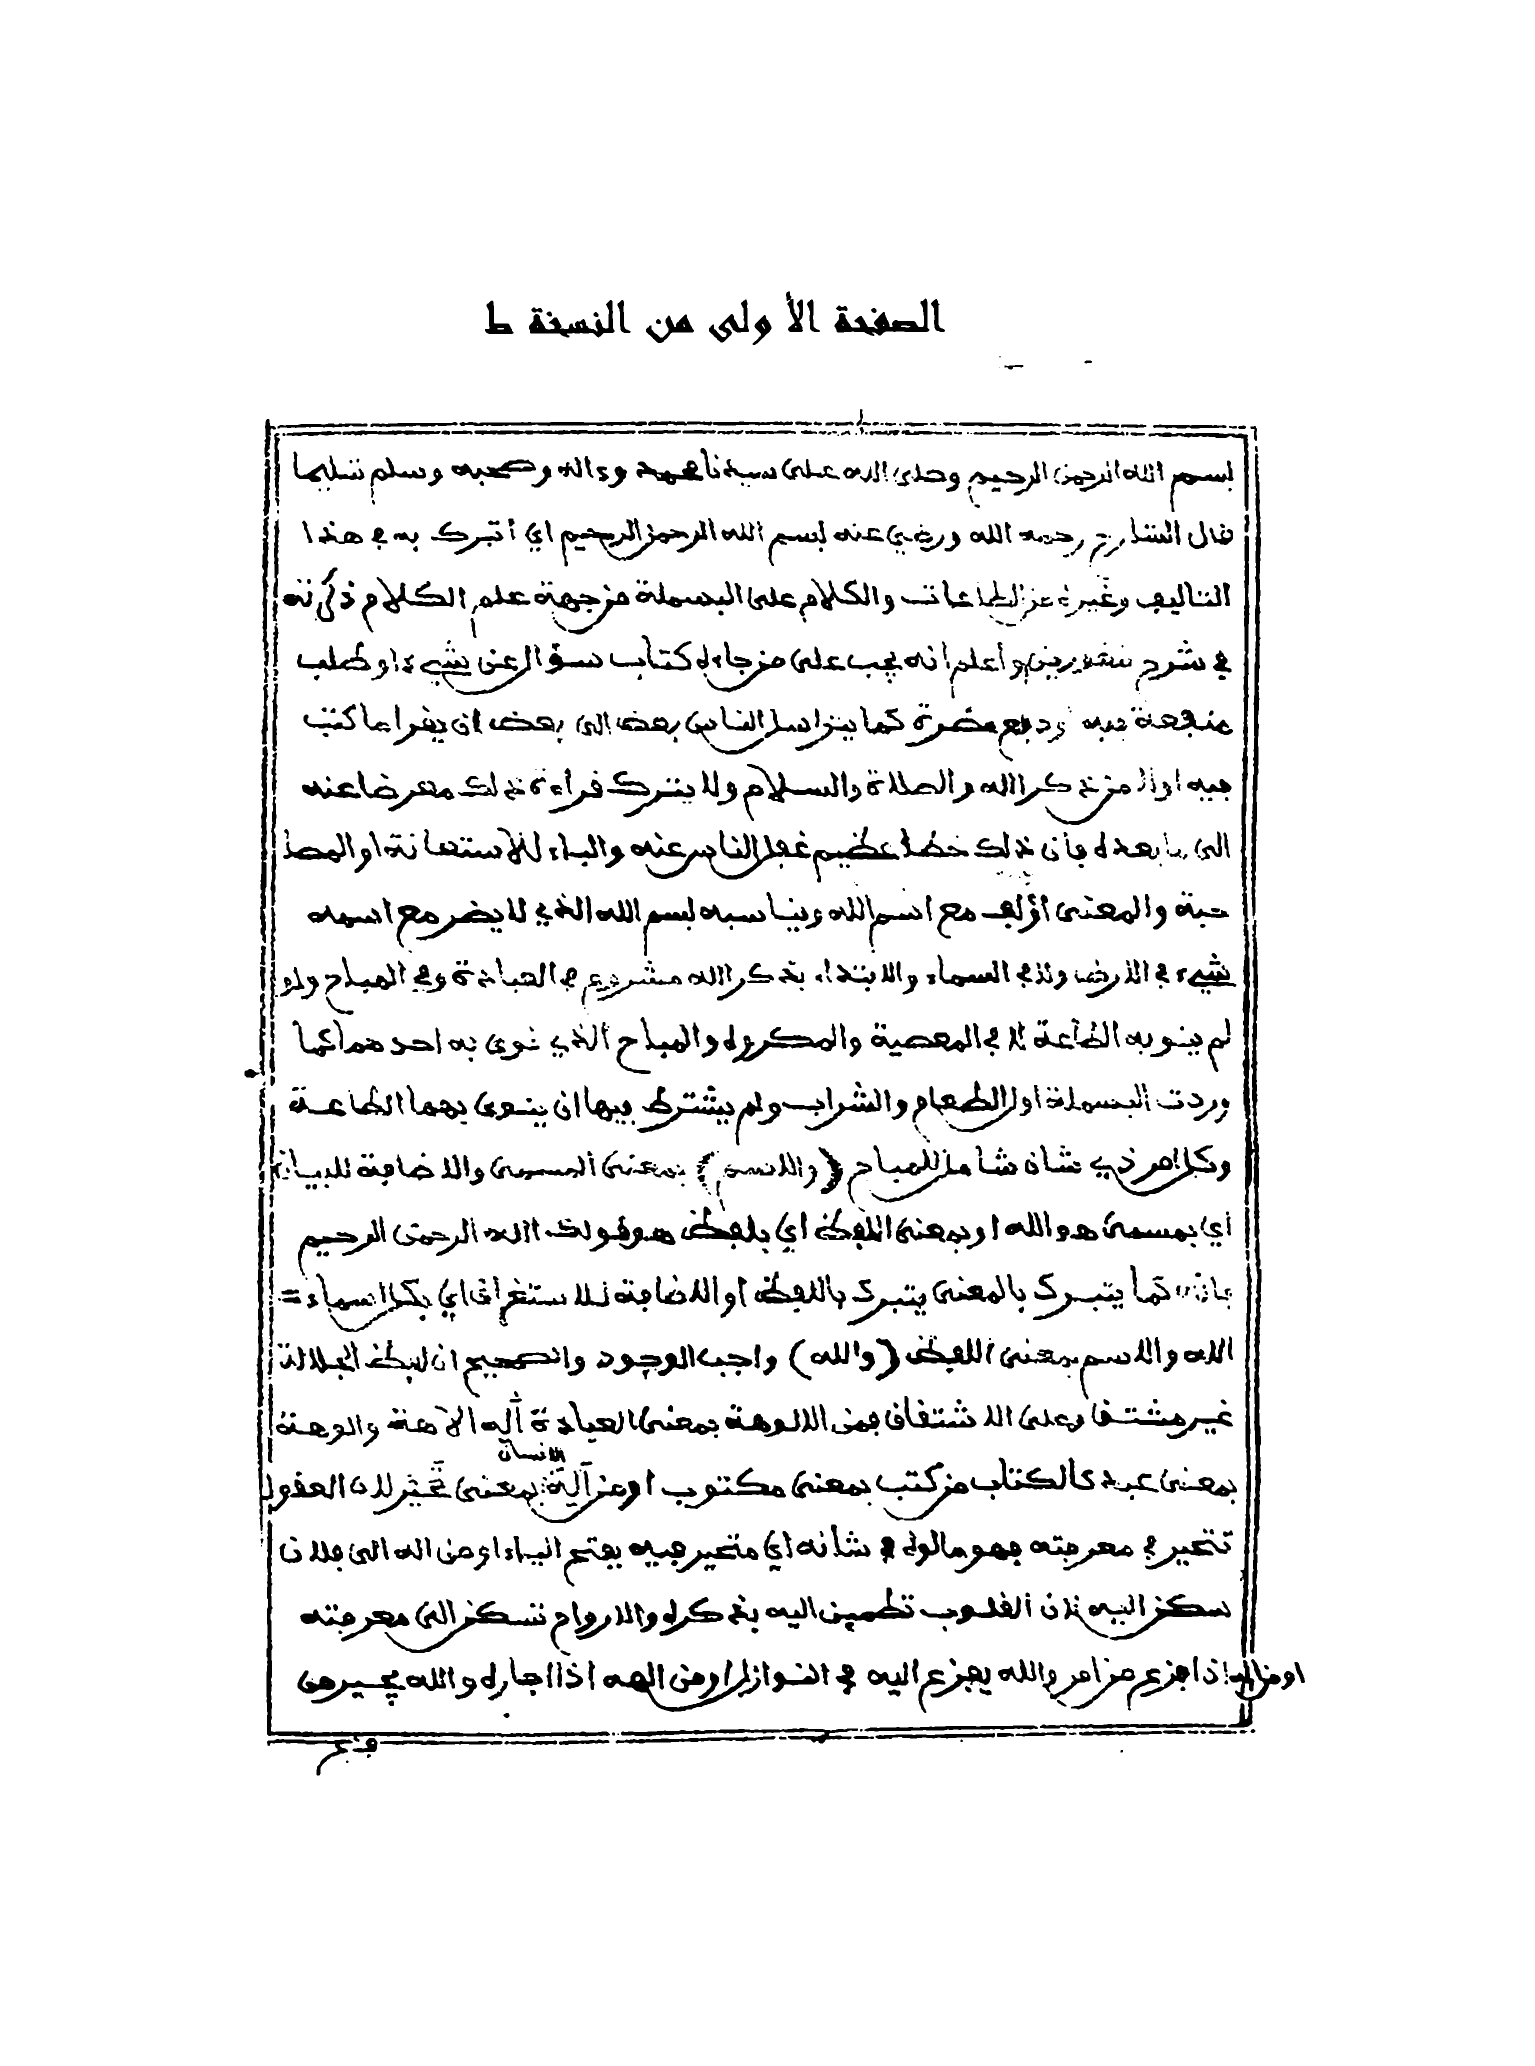 الصفحة الأولى من النسخة ط
بسم الله الرحمن الرحيم وصلى الله على سيدنا محمد وءاله وصحبه وسلم تسليما
قال الشارح رحمه الله ورضي عنه بسم الله الرحمن الرحيم اي أتبرك به في هذا
التاليف وغيره من الطاعات والكلام على البسملة من جهة علم الكلام ذكرته
في شرح وأعلم أنه يجب على من جاءه كتاب سؤال عن شيء او طلب
منفعة فيه او دفع مضرة كما يتراسل الناس بعض الى بعض ان يقرا ما كتب
فيه اولا من ذكر الله والصلاة والسلام ولا يترك قراءة ذلك معرضا عنه
الى ما بعده فان ذلك خطأ عظيم غفل الناس عنه والباء للاستعانة او المصا
حبة والمعنى أؤلف مع اسم الله ويناسبه بسم الله الذي لا يضر مع اسمه
شيء في الارض ولا في السماء والابتداء بذكر الله مشروع في العبادة وفي المباح ولو
لم ينو به الطاعة لا في المعصية والمكروه والمباح الذي نوى به احدهما كما
وردت البسملة اول الطعام والشراب ولم يشترط فيها ان ينوى بهما الطاعة
وكل امر ذي شان شامل للمباح (والاسم) بمعنى المسمى والاضافة للبيان
أي بمسمى هو الله او بمعنى اللفظ اي بلفظ هو قولك الله الرحمن الرحيم
فانه كما يتبرك بالمعنى يتبرك باللفظ او الاضافة للاستغراق اي بكل اسماء =
الله والاسم بمعنى اللفظ (والله) واجب الوجود والصحيح ان لفظ الجلالة
غير مشتق وعلى الاشتقاق فمن الالوهة بمعنى العبادة أله الآهة والوهة
بمعنى عبد كالكتاب من كتب بمعنى مكتوب او من أله الانسان بمعنى تحير لان العقول
تتحير في معرفته فهو مالوه في شانه اي متحير فيه بفتح الياء او من اله الى فلان
سكن اليه لان القلوب تطمئن اليه بذكره والارواح تسكن الى معرفته
او من اله اذا فزع من امر والله يفزع اليه في النوازل او من الهه اذا اجاره والله يجير من
فزع